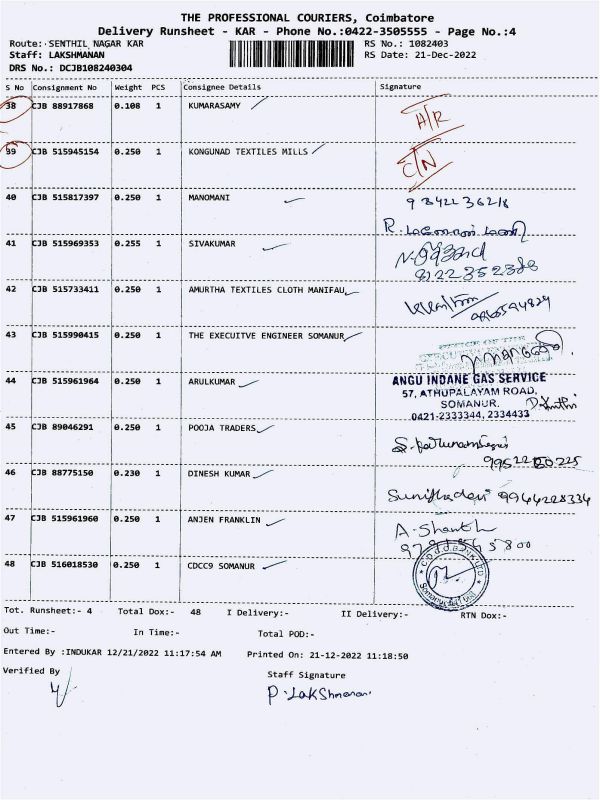 THE PROFESSIONAL COURIERS, Coimbatore
Delivery Runsheet - KAR - Phone No.:0422-3505555 - Page No.:4
Route: SENTHIL NAGAR KAR RS No.: 1082403
Staff: LAKSHMANAN RS Date: 21-Dec-2022
DRS No.: DCJB108240304
S No Consignment No Weight PCS Consignee Details Signature
38 CJB 88917868 0.108 1 KUMARASAMY A/R
39 CJB 515945154 0.250 1 KONGUNAD TEXTILES MILLS C/N
40 CJB 515817397 0.250 1 MANOMANI
41 CJB 515969353 0.255 1 SIVAKUMAR
8122352388
42 CJB 515733411 0.250 1 AMURTHA TEXTILES CLOTH MANIFAU
43 CJB 515990415 0.250 1 THE EXECUITVE ENGINEER SOMANUR
OFFICE OF THE
44 CJB 515961964 0.250 1 ARULKUMAR
ANGU INDANE GAS SERVICE
57, ATHUPALAYAM ROAD,
SOMANUR.
0421-2333344, 2334433
45 CJB 89046291 0.250 1 POOJA TRADERS
46 CJB 88775150 0.230 1 DINESH KUMAR
9944228334
47 CJB 515961960 0.250 1 ANJEN FRANKLIN
48 CJB 516018530 0.250 1 CDCC9 SOMANUR
Tot. Runsheet:- 4 Total Dox:- 48 I Delivery:- II Delivery:- RTN Dox:-
Out Time:- In Time:- Total POD:-
Entered By :INDUKAR 12/21/2022 11:17:54 AM Printed On: 21-12-2022 11:18:50
Verified By Staff Signature
P. Lakshmanan